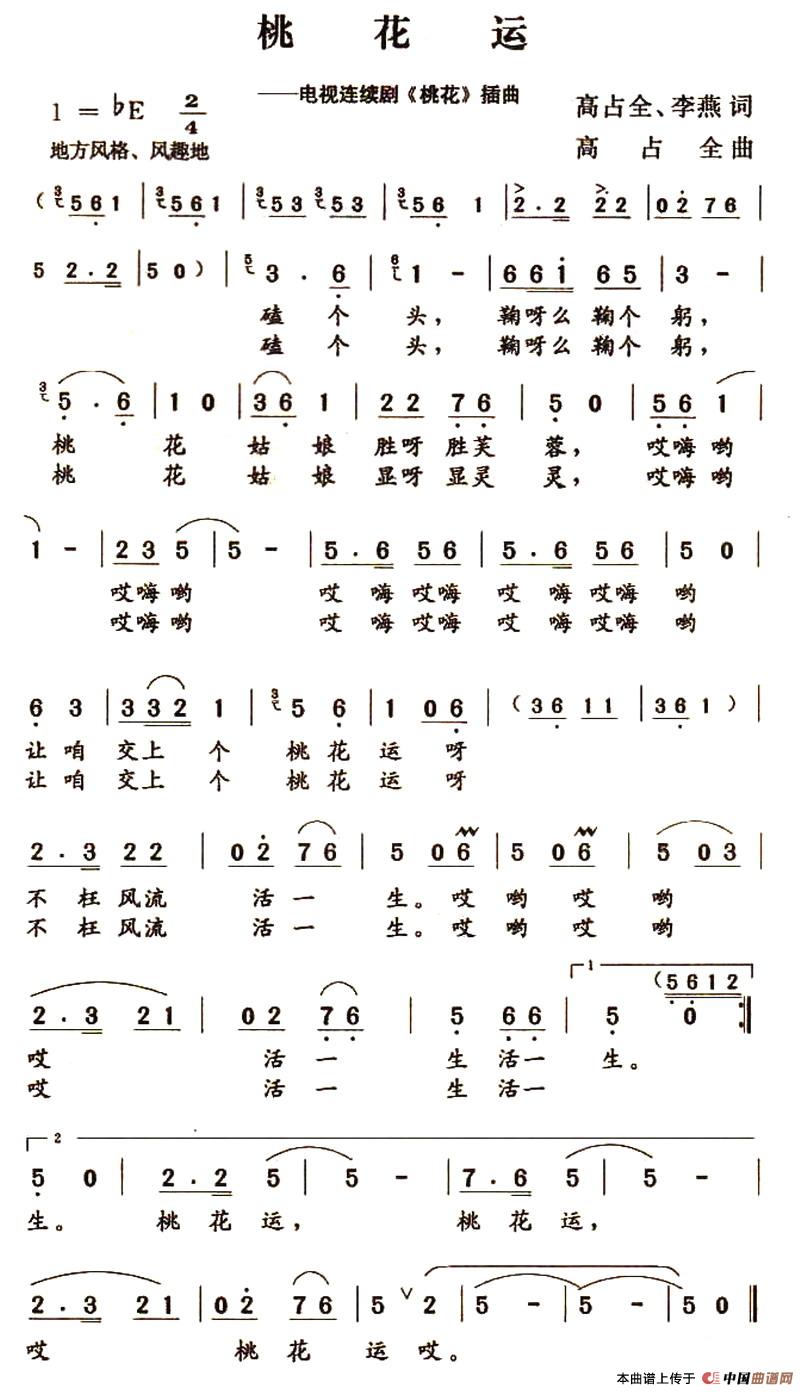 桃 花 运
——电视连续剧《桃花》插曲
1 = ♭E 2/4
高占全、李燕 词
地方风格、风趣地
高 占 全 曲
( 5 6 1 | 5 6 1 | 5 3 5 3 | 5 6 1 | 2 . 2 2 . 2 | 0 2 7 6 |
5 2 . 2 | 5 0 ) | 3 . 6 | 1 - | 6 6 1 6 5 | 3 - |
磕 个 头， 鞠呀么 鞠个 躬，
磕 个 头， 鞠呀么 鞠个 躬，
5 . 6 | 1 0 | 3 6 1 | 2 2 7 6 | 5 0 | 5 6 1 |
桃 花 姑 娘 胜呀 胜芙 蓉， 哎嗨哟
桃 花 姑 娘 显呀 显灵 灵， 哎嗨哟
1 - | 2 3 5 | 5 - | 5 . 6 5 6 | 5 . 6 5 6 | 5 0 |
哎嗨哟 哎 嗨 哎嗨 哎 嗨 哎嗨 哟
哎嗨哟 哎 嗨 哎嗨 哎 嗨 哎嗨 哟
6 3 | 3 3 2 1 | 5 6 | 1 0 6 | ( 3 6 1 1 | 3 6 1 ) |
让 咱 交上 个 桃 花 运 呀
让 咱 交上 个 桃 花 运 呀
2 . 3 2 2 | 0 2 7 6 | 5 0 6 | 5 0 6 | 5 0 3 |
不 枉 风流 活 一 生。哎 哟 哎 哟
不 枉 风流 活 一 生。哎 哟 哎 哟
2 . 3 2 1 | 0 2 7 6 | 5 6 6 | 1 5 0 ( 5 6 1 2 :|
哎 活 一 生 活一 生。
哎 活 一 生 活一
2
5 0 | 2 . 2 5 | 5 - | 7 . 6 5 | 5 - |
生。 桃 花 运， 桃 花 运，
2 . 3 2 1 | 0 2 7 6 | 5 ∨ 2 | 5 - | 5 - | 5 0 ||
哎 桃 花 运 哎。
本曲谱上传于 中国曲谱网